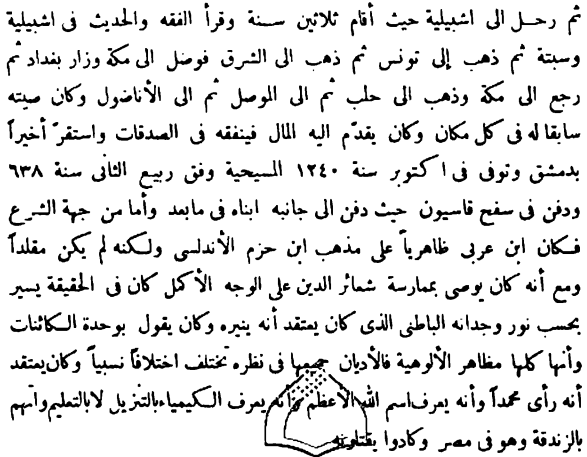 ثم رحل الى اشبيلية حيث أقام ثلاثين سنة وقرأ الفقه والحديث فى اشبيلية
وسبتة ثم ذهب إلى تونس ثم ذهب الى الشرق فوصل الى مكة وزار بغداد ثم
رجع الى مكة وذهب الى حلب ثم الى الموصل ثم الى الأناضول وكان صيته
سابقا له فى كل مكان وكان يقدّم اليه المال فينفقه فى الصدقات واستقرّ أخيراً
بدمشق وتوفى فى اكتوبر سنة ١٢٤٠ المسيحية وفق ربيع الثانى سنة ٦٣٨
ودفن فى سفح قاسيون حيث دفن الى جانبه ابناه فى مابعد وأما من جهة الشرع
فكان ابن عربى ظاهرياً على مذهب ابن حزم الأندلسى ولكنه لم يكن مقلداً
ومع أنه كان يوصى بممارسة شعائر الدين على الوجه الأكمل كان فى الحقيقة يسير
بحسب نور وجدانه الباطنى الذى كان يعتقد أنه ينيره وكان يقول بوحدة الكائنات
وأنها كلها مظاهر الألوهية فالأديان جميعها فى نظره تختلف اختلافاً نسبياً وكان يعتقد
أنه رأى محمداً وأنه يعرف اسم الله الأعظم وأنه يعرف الكيمياء بالتنزيل لا بالتعليم واتهم
بالزندقة وهو فى مصر وكادوا يقتلونه